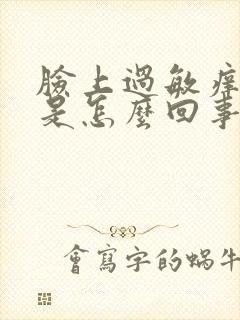 臉上過敏癢
是怎麼回事
會寫字的蝸牛